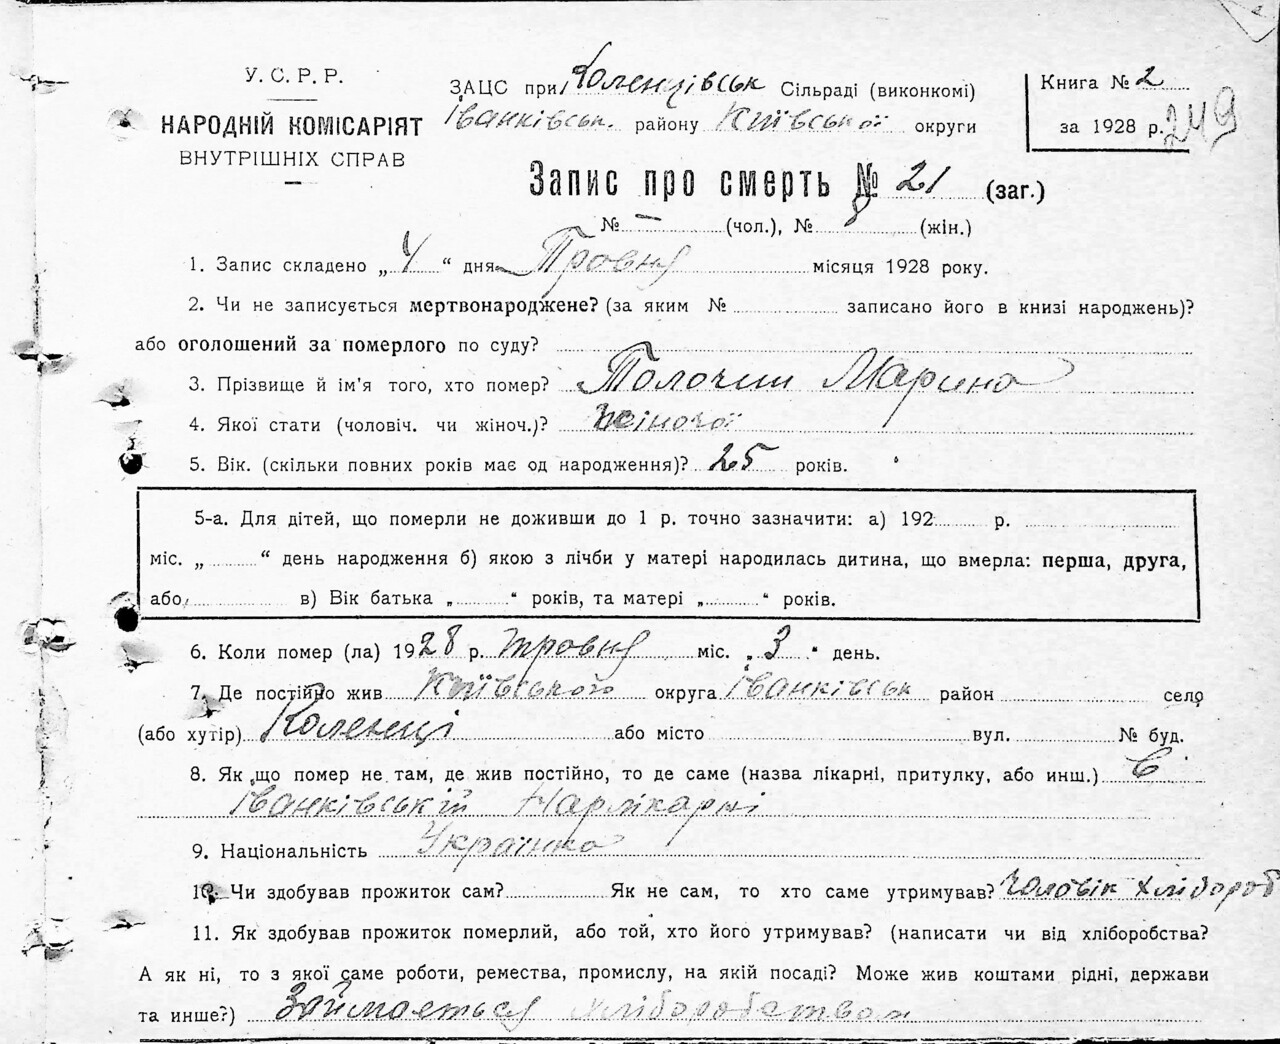 У. С. Р. Р.
НАРОДНІЙ КОМІСАРІЯТ
ВНУТРІШНІХ СПРАВ
ЗАЦС при Коленцівськ Сільраді (виконкомі)
Іванківськ. району Київської округи
Книга № 2
за 1928 р.
249
Запис про смерть № 21 (заг.)
№ — (чол.), № 8 (жін.)
1. Запис складено „ 4 “ дня Тровня місяця 1928 року.
2. Чи не записується мертвонароджене? (за яким № записано його в книзі народжень)?
або оголошений за померлого по суду?
3. Прізвище й ім'я того, хто помер? Толочин Марина
4. Якої стати (чоловіч. чи жіноч.)? жіночої
5. Вік. (скільки повних років має од народження)? 25 років.
5-а. Для дітей, що померли не доживши до 1 р. точно зазначити: а) 192 р.
міс. „ “ день народження б) якою з лічби у матері народилась дитина, що вмерла: перша, друга,
або в) Вік батька „ “ років, та матері „ “ років.
6. Коли помер (ла) 1928 р. тровня міс. „ 3 “ день.
7. Де постійно жив Київського округа Іванківськ район село
(або хутір) Коленці або місто вул. № буд.
8. Як що помер не там, де жив постійно, то де саме (назва лікарні, притулку, або инш.) в
Іванківській Нарлікарні
9. Національність Українка
10. Чи здобував прожиток сам? Як не сам, то хто саме утримував? Чоловік хлібороб
11. Як здобував прожиток померлий, або той, хто його утримував? (написати чи від хліборобства?
А як ні, то з якої саме роботи, ремества, промислу, на якій посаді? Може жив коштами рідні, держави
та инше?) Займається хліборобством